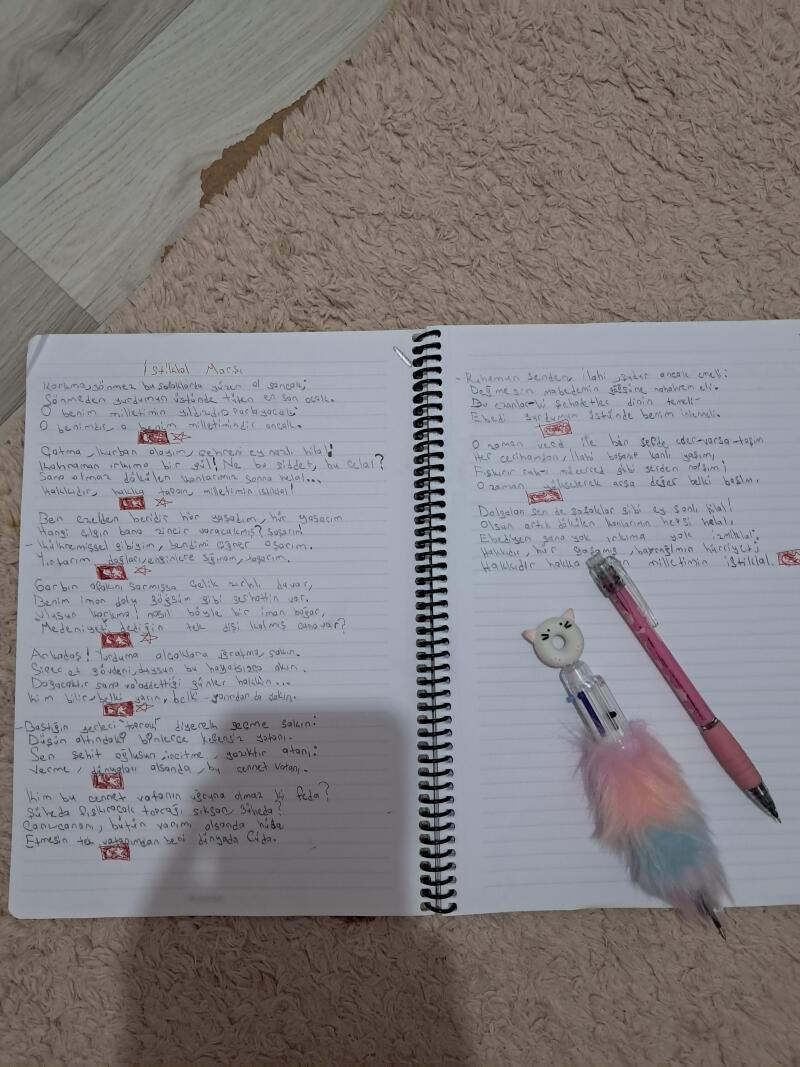 İstiklal Marşı
Korkma, sönmez bu şafaklarda yüzen al sancak;
Sönmeden yurdumun üstünde tüten en son ocak.
O benim milletimin yıldızıdır parlayacak;
O benimdir, o benim milletimindir ancak.
Çatma, kurban olayım, çehreni ey nazlı hilal!
Kahraman ırkıma bir gül! Ne bu şiddet, bu celal?
Sana olmaz dökülen kanlarımız sonra helal...
Hakkıdır, hakka tapan, milletimin istiklal!
Ben ezelden beridir hür yaşadım, hür yaşarım
Hangi çılgın bana zincir vuracakmış? Şaşarım
- Kükremişsel gibiyim, bendimi çiğner aşarım.
Yırtarım dağları, enginlere sığmam, taşarım.
Garbın afakını sarmışsa çelik zırhlı duvar,
Benim iman dolu göğsüm gibi serhattin var.
Ulusun korkma! nasıl böyle bir iman boğar,
Medeniyet dediğin tek dişi kalmış canavar?
Arkadaş! Yurduma alçaklara uğratma, sakın.
Siper et gövdeni, dursun bu hayasızca akın.
Doğacaktır sana va'addettiği günler hakkın...
Kim bilir, belki yarın, belki yarından da yakın.
- Bastığın yerleri "toprak" diyerek geçme sakın:
Düşün altındaki binlerce kefensiz yatanı.
Sen şehit oğlusun, incitme, yazıktır atanı:
Verme, dünyaları alsanda, bu cennet vatanı.
Kim bu cennet vatanın uğruna olmaz ki feda?
Şüheda fışkıracak toprağı sıksan, Şüheda?
Canı, cananı, bütün varımı alsanda hüda
Etmesin tek vatanımdan beni dünyada Cüda.
- Ruhumun senden, ilahi, şudur ancak emeli:
Değmesin mabedimin göğsüne nahahrem eli.
Bu ezanlar-ki şehadetler dinin temeli-
Ebedi yurdumun üstünde benim inlemeli.
O zaman vecd ile bin secde eder-varsa-taşım
Her cerihamdan, ilahi boşanıp kanlı yaşım;
Fışkırır ruh-ı mücerred gibi yerden na'şım;
O zaman yükselerek arşa değer belki başım.
Dalgalan sen de şafaklar gibi ey şanlı hilal!
Olsun artık dökülen kanlarımın hepsi helal.
Ebediyen sana yok ırkıma yok izmihlal:
Hakkıdır, hür yaşamış, bayrağımın hürriyet;
Hakkıdır hakka milletimin istiklal.